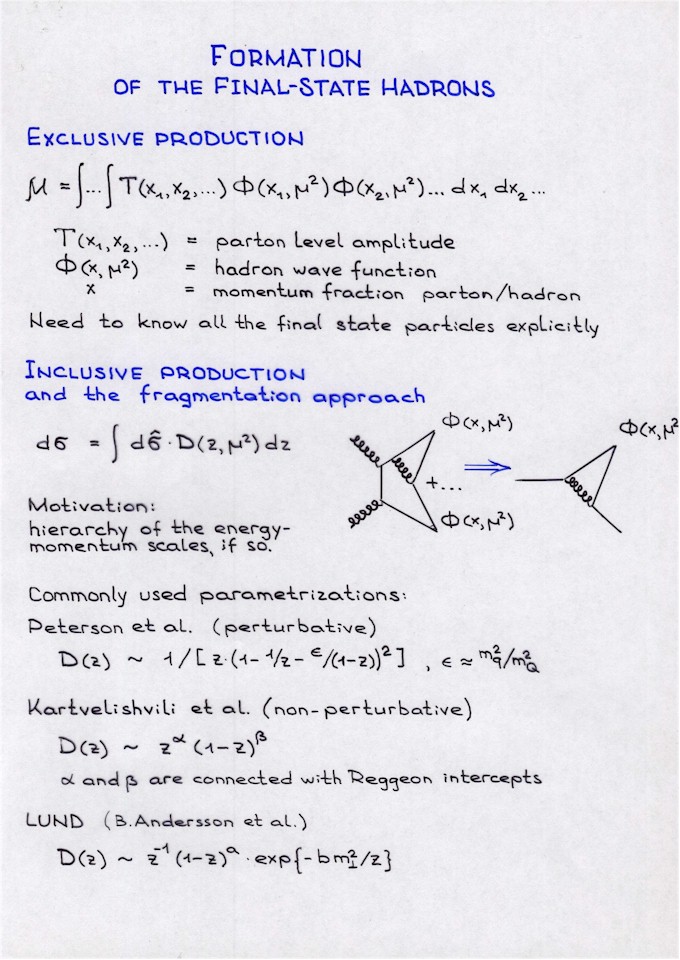 FORMATION
OF THE FINAL-STATE HADRONS
EXCLUSIVE PRODUCTION
M = ∫...∫ T(x₁,x₂,...) Φ(x₁,μ²) Φ(x₂,μ²)... dx₁ dx₂ ...
T(x₁,x₂,...) = parton level amplitude
Φ(x,μ²) = hadron wave function
x = momentum fraction parton/hadron
Need to know all the final state particles explicitly
INCLUSIVE PRODUCTION
and the fragmentation approach
dσ = ∫ dσ̂ · D(z,μ²) dz
Φ(x,μ²)
+...
Φ(x,μ²)
⇒
Φ(x,μ²
Motivation:
hierarchy of the energy-
momentum scales, if so.
Commonly used parametrizations:
Peterson et al. (perturbative)
D(z) ~ 1/[z·(1-1/z-ϵ/(1-z))²] , ϵ ≈ m²q/m²Q
Kartvelishvili et al. (non-perturbative)
D(z) ~ z^α (1-z)^β
α and β are connected with Reggeon intercepts
LUND (B.Andersson et al.)
D(z) ~ z⁻¹ (1-z)^a · exp{-bm²⊥/z}